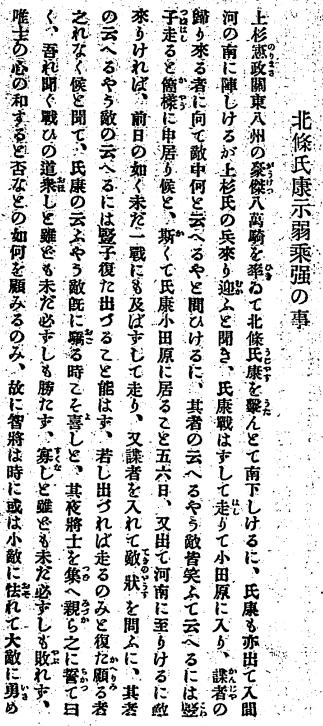 北條氏康示弱乘强の事
上杉憲政關東八州の豪傑八萬騎を率ゐて北條氏康を擊んとて南下しけるに、氏康も亦出て入間
河の南に陣しけるが上杉氏の兵來り迎ふと聞き、氏康戰はずして走りて小田原に入り、諜者の
歸り來る者に向て敵中何と云へるやと問ひけるに、其者の云へるやう敵皆笑ふて云へるには豎
子走ると箇樣に申居り候と、斯くて氏康小田原に居ること五六日、又出て河南に至りけるに敵
來りければ、前日の如く未だ一戰にも及ばずして走り、又諜者を入れて敵狀を問ふに、其者
の云へるやう敵の云へるには豎子復た出づること能はず、若し出づれば走るのみと復た顧る者
之れなく候と聞て、氏康の云ふやう敵旣に驕る時こそ喜しと、其夜將士を集へ親ら之に誓て曰
く、吾れ聞く戰ひの道衆しと雖ども未だ必ずしも勝たず、寡しと雖ども未だ必ずしも敗れず、
唯士の心の和すると否なとの如何を顧みるのみ、故に智將は時に或は小敵に怯れて大敵に勇め